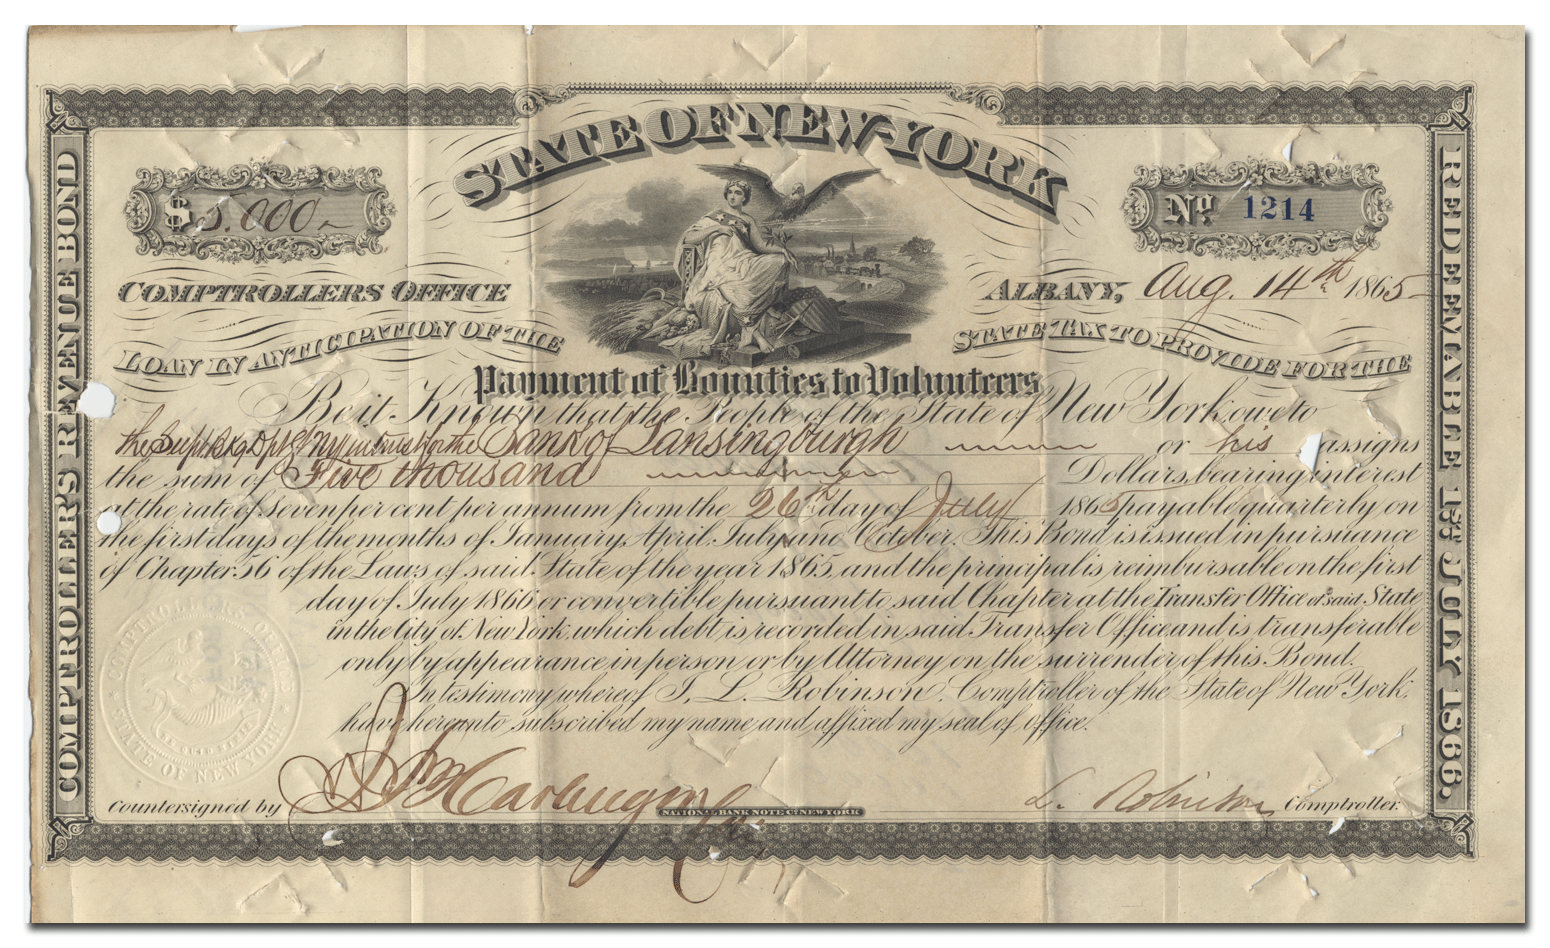 STATE OF NEW-YORK
$ 5.000-
No 1214
COMPTROLLERS OFFICE
ALBANY, Aug. 14th 1865
LOAN IN ANTICIPATION OF THE STATE TAX TO PROVIDE FOR THE
Payment of Bounties to Volunteers
Be it Known that the People of the State of New York, owe to
the Supt Bkg Dpt of NY in trust for the Bank of Lansingburgh or his assigns
the sum of Five thousand Dollars, bearing interest
at the rate of seven per cent per annum from the 26th day of July 1865 payable quarterly on
the first days of the months of January, April, July and October. This Bond is issued in pursuance
of Chapter 56 of the Laws of said State of the year 1865, and the principal is reimbursable on the first
day of July 1866 or convertible pursuant to said Chapter at the Transfer Office of said State
in the City of New York, which debt is recorded in said Transfer Office and is transferable
only by appearance in person or by Attorney on the surrender of this Bond.
In testimony whereof I, L. Robinson, Comptroller of the State of New York,
have hereunto subscribed my name and affixed my seal of office.
Countersigned by
L. Robinson Comptroller.
NATIONAL BANK NOTE Co. NEW YORK
COMPTROLLER'S REVENUE BOND
REDEEMABLE 1ST JULY 1866.
COMPTROLLERS OFFICE
STATE OF NEW YORK